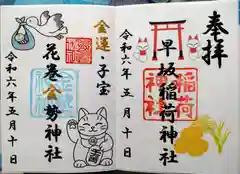 奉拝
早坂稲荷神社
稲荷神社
令和六年五月十日
金運・子宝
花巻金勢神社
令和六年五月十日